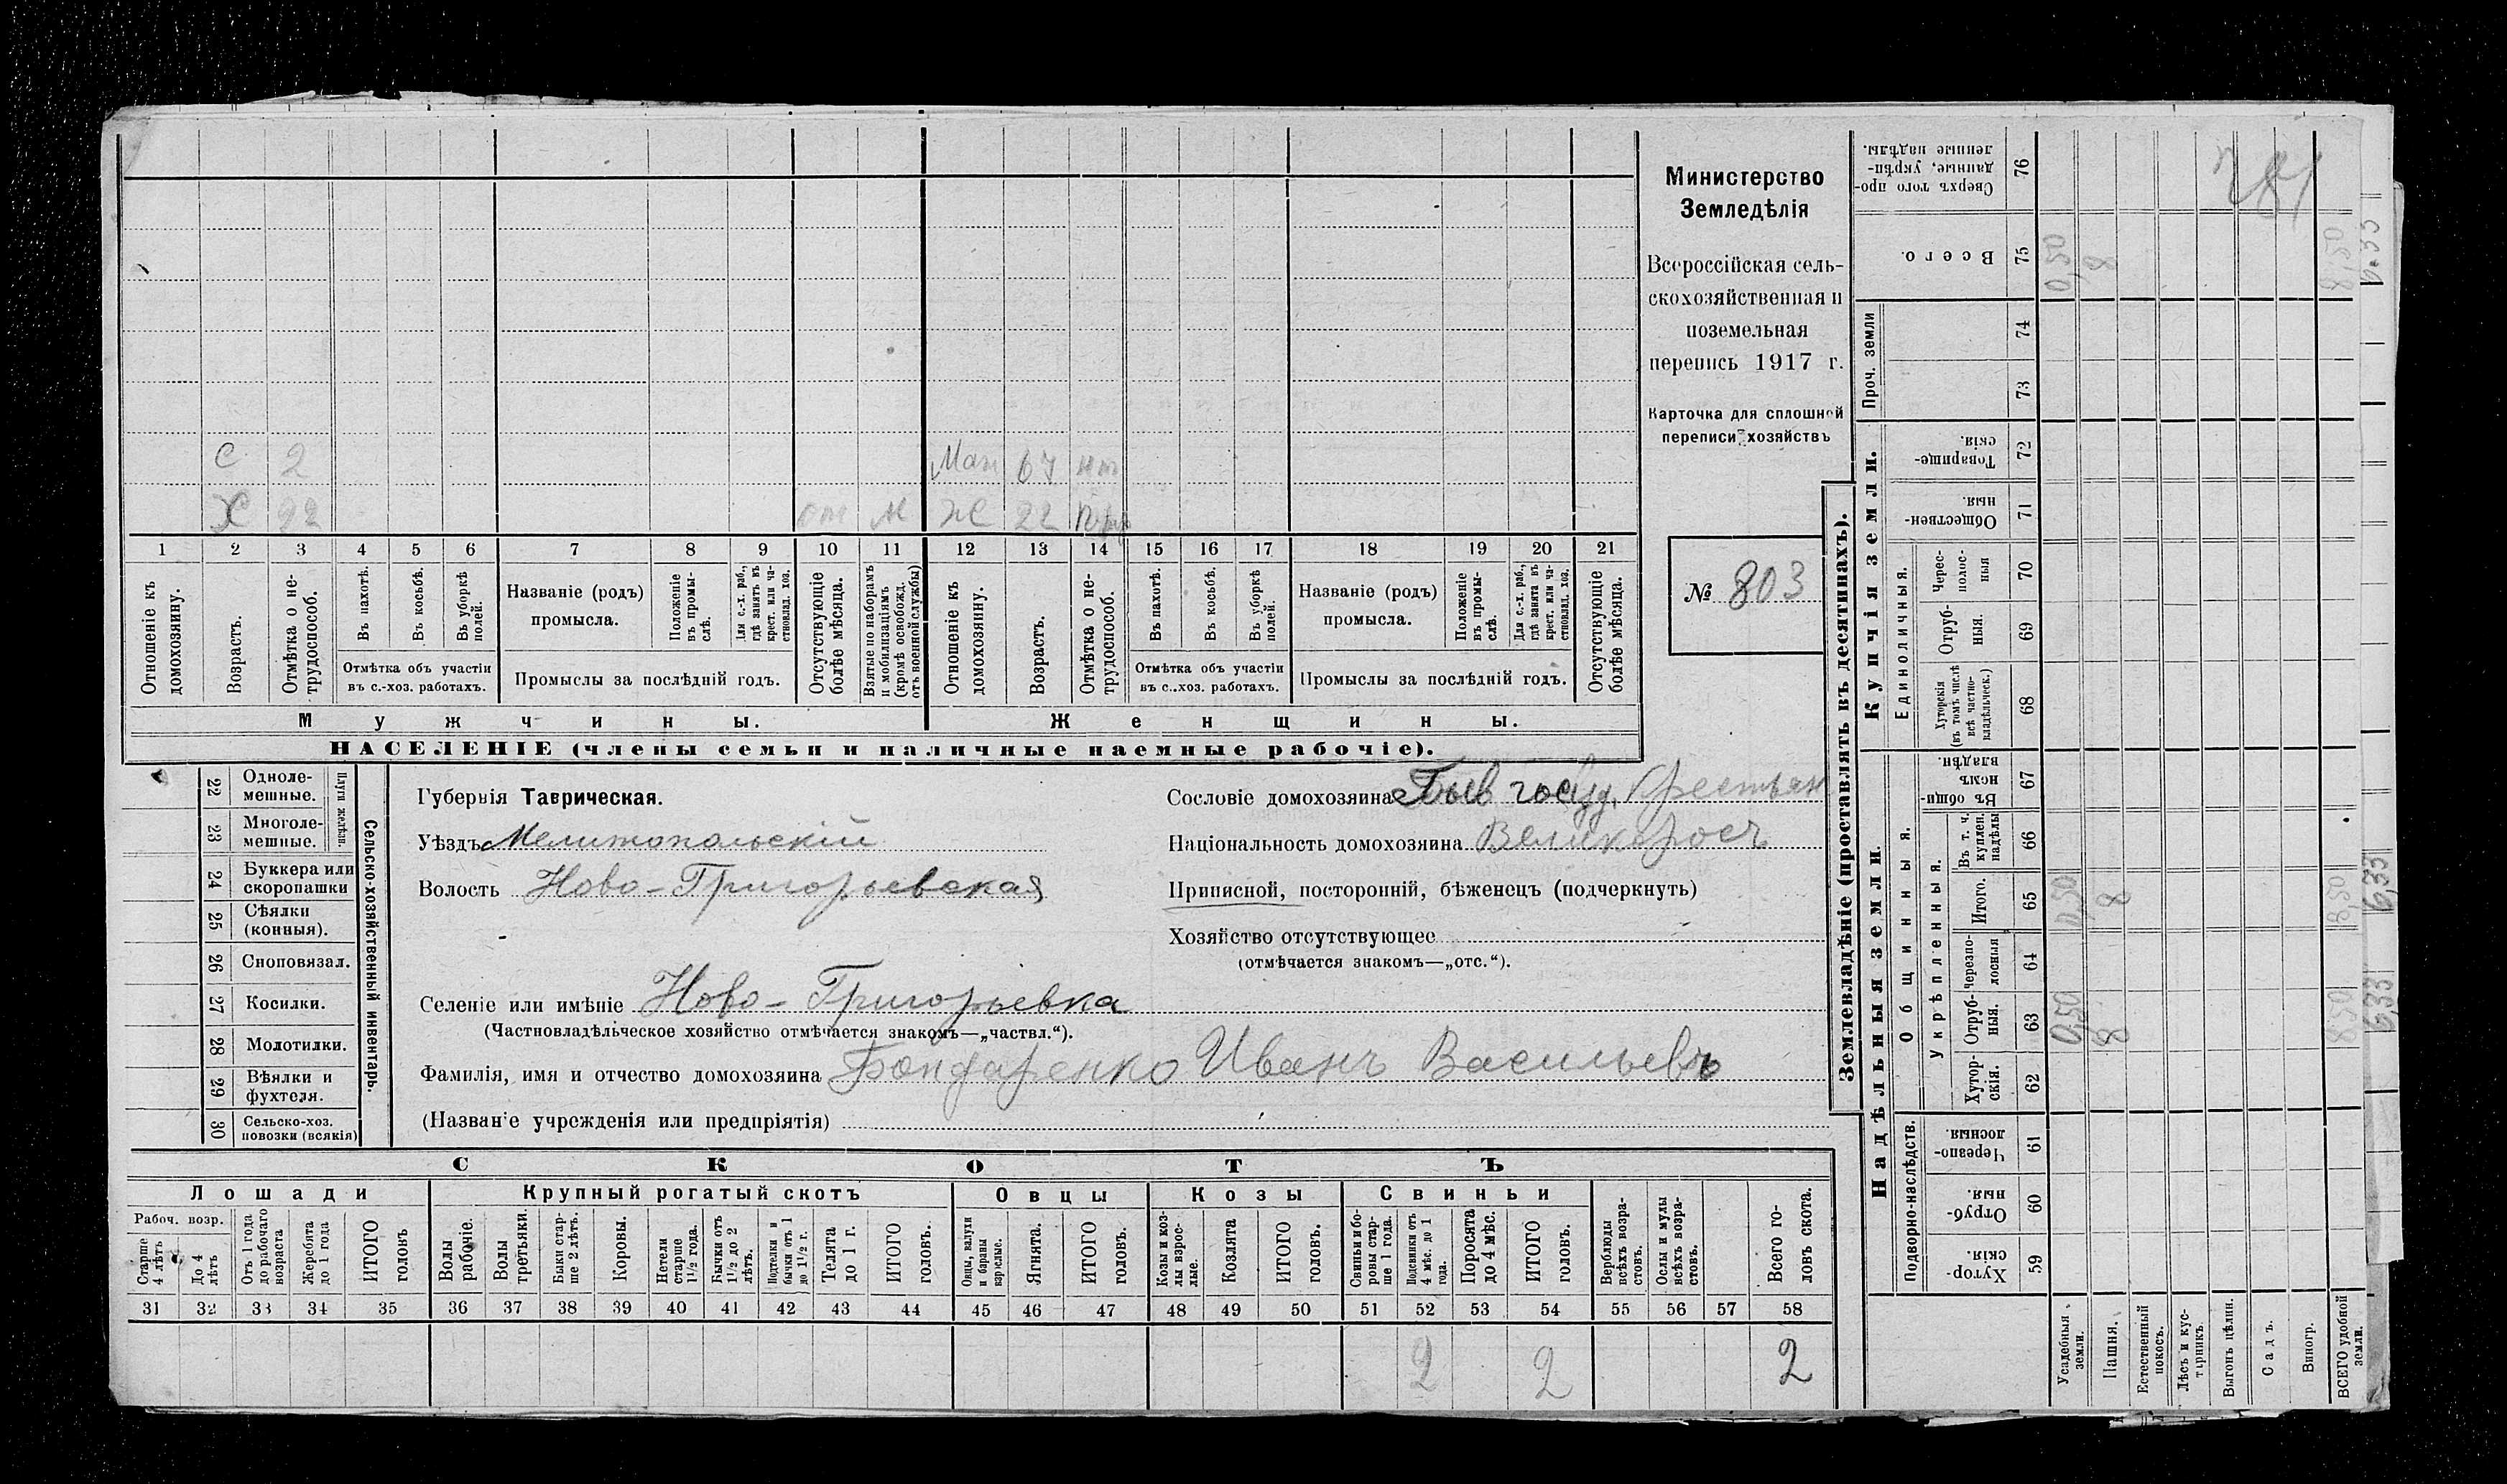 Министерство
Земледѣлія
Всероссійская сель-
скохозяйственная и
поземельная
перепись 1917 г.
Карточка для сплошной
переписи хозяйствъ
№ 803
С 2 Мат 67 нт
Х 22 от М Ж 22
1 2 3 4 5 6 7 8 9 10 11 12 13 14 15 16 17 18 19 20 21
Отношеніе къ домохозяину.
Возрастъ.
Отмѣтка о не-трудоспособ.
Въ пахотѣ.
Въ косьбѣ.
Въ уборкѣ полей.
Отмѣтка объ участіи въ с.-хоз. работахъ.
Названіе (родъ) промысла.
Положеніе въ промы-слѣ.
Для с.-х. раб., гдѣ занятъ въ крест. или ча-стновлад. хоз.
Промыслы за послѣдній годъ.
Отсутствующіе болѣе мѣсяца.
Взятые по наборамъ и мобилизаціямъ (кромѣ освобожд. отъ военной службы)
Отношеніе къ домохозяину.
Возрастъ.
Отмѣтка о не-трудоспособ.
Въ пахотѣ.
Въ косьбѣ.
Въ уборкѣ полей.
Отмѣтка объ участіи въ с.-хоз. работахъ.
Названіе (родъ) промысла.
Положеніе въ промы-слѣ.
Для с.-х. раб., гдѣ занята въ крест. или ча-стновлад. хоз.
Промыслы за послѣдній годъ.
Отсутствующіе болѣе мѣсяца.
Мужчины. Женщины.
НАСЕЛЕНІЕ (члены семьи и наличные наемные рабочіе).
22 Одноле-мешные.
23 Многоле-мешные.
Плуги желѣзн.
24 Буккера или скоропашки
25 Сѣялки (конныя).
26 Сноповязал.
27 Косилки.
28 Молотилки.
29 Вѣялки и фухтеля.
30 Сельско-хоз. повозки (всякія)
Сельско-хозяйственный инвентарь.
Губернія Таврическая.
Уѣздъ Мелитопольскій
Волость Ново-Григорьевская
Селеніе или имѣніе Ново-Григорьевка
(Частновладѣльческое хозяйство отмѣчается знакомъ—„частвл.“).
Фамилія, имя и отчество домохозяина Бондаренко Иванъ Васильевъ
(Названіе учрежденія или предпріятія)
Сословіе домохозяина Быв госуд. Крестьян
Національность домохозяина Великоросъ
Приписной, посторонній, бѣженецъ (подчеркнуть)
Хозяйство отсутствующее
(отмѣчается знакомъ—„отс.“).
СКОТЪ
Лошади Крупный рогатый скотъ Овцы Козы Свиньи
Рабоч. возр.
Старше 4 лѣтъ
До 4 лѣтъ
Отъ 1 года до рабочаго возраста
Жеребята до 1 года
ИТОГО головъ
Волы рабочіе.
Волы третьяки.
Быки стар-ше 2 лѣтъ.
Коровы.
Нетели старше 1½ года.
Бычки отъ 1½ до 2 лѣтъ.
Подтелки и бычки отъ 1 до 1½ г.
Телята до 1 г.
ИТОГО головъ.
Овцы, валухи и бараны взрослые.
Ягнята.
ИТОГО головъ.
Козы и коз-лы взрос-лые.
Козлята
ИТОГО головъ.
Свиньи и бо-ровы стар-ше 1 года.
Подсвинки отъ 4 мѣс. до 1 года.
Поросята до 4 мѣс.
ИТОГО головъ.
Верблюды всѣхъ возра-стовъ.
Ослы и мулы всѣхъ возра-стовъ.
Всего го-ловъ скота.
31 32 33 34 35 36 37 38 39 40 41 42 43 44 45 46 47 48 49 50 51 52 53 54 55 56 57 58
2 2 2
Землевладѣніе (проставлять въ десятинахъ).
Надѣльныя земли. Купчія земли. Проч. земли
Подворно-наслѣдств.
Общинныя.
Укрѣпленныя.
Единоличныя.
Хутор-скія. 59
Отруб-ныя. 60
Черезпо-лосныя. 61
Хутор-скія. 62
Отруб-ныя. 63 0,50 8 8,50 6,33
Черезпо-лосныя 64
Итого. 65 0,50 8 8,50 6,33
Въ т. ч. куплен. надѣлы 66
Въ общин-номъ владѣн. 67
Хуторскія (въ томъ числѣ всѣ частно-владѣльческ.) 68
Отруб-ныя. 69
Черес-полос-ныя 70
Обществен-ныя. 71
Товарище-скія. 72
73
74
Всего. 75 0,50 8 8,50 6.33
Сверхъ того про-данные, укрѣп-ленные надѣлы. 76
Усадебныя земли.
Пашня.
Естественный покосъ.
Лѣсъ и кус-тарникъ.
Выгонъ цѣлин.
Садъ.
Виногр.
ВСЕГО удобной земли.